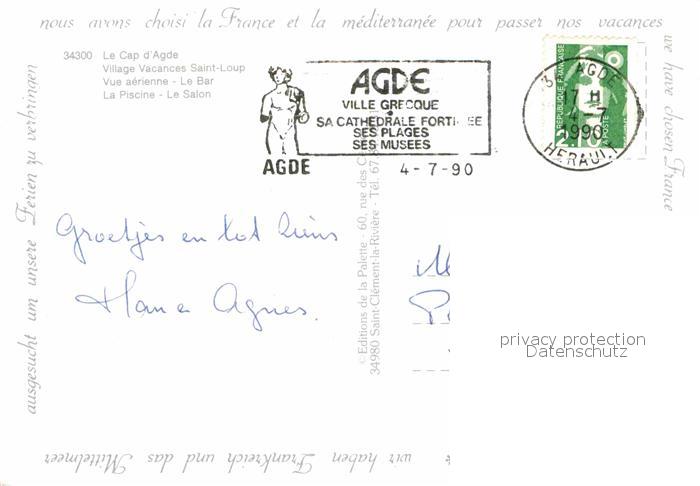 nous avons choisi la France et la méditerranée pour passer nos vacances
34300 Le Cap d'Agde
Village Vacances Saint-Loup
Vue aérienne - Le Bar
La Piscine - Le Salon
AGDE
VILLE GRECQUE
SA CATHEDRALE FORTI EE
SES PLAGES
SES MUSEES
AGDE
4-7-90
AGDE
H
4-7
1990
HERAULT
REPUBLIQUE FRANÇAISE
2.10
POSTE
we have chosen France
Groetjes en tot ziens
Agnes.
© Editions de la Palette - 60, rue des C
34980 Saint-Clément-la-Rivière - Tél. 67
privacy protection
Datenschutz
wir haben Frankreich und das Mittelmeer
ausgesucht um unsere Ferien zu verbringen